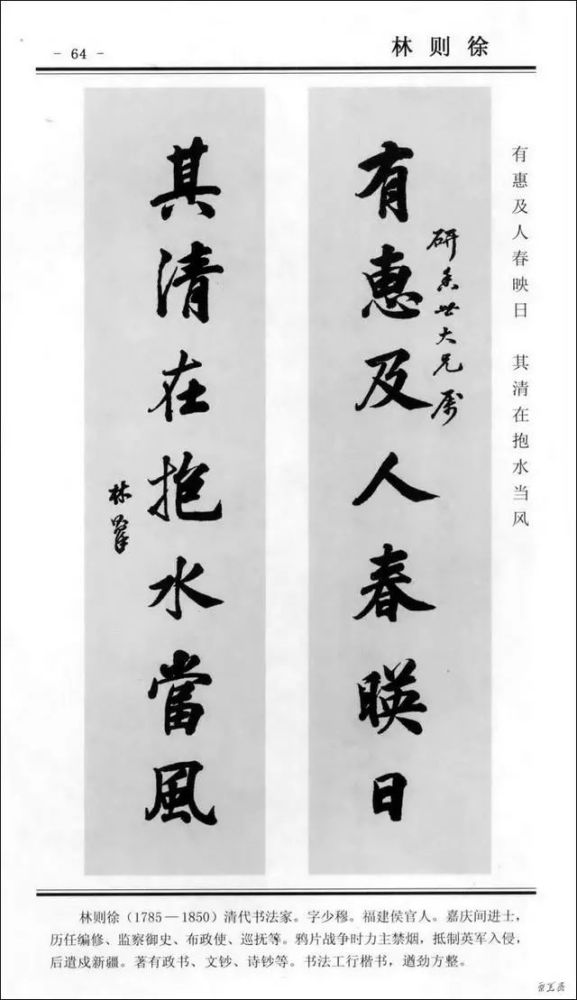 - 64 -
林则徐
有惠及人春映日 其清在抱水当风
有惠及人春暎日
研香世大兄属
其清在抱水當風
林则徐
林则徐(1785—1850)清代书法家。字少穆。福建侯官人。嘉庆间进士，
历任编修、监察御史、布政使、巡抚等。鸦片战争时力主禁烟，抵制英军入侵，
后遣戍新疆。著有政书、文钞、诗钞等。书法工行楷书，遒劲方整。